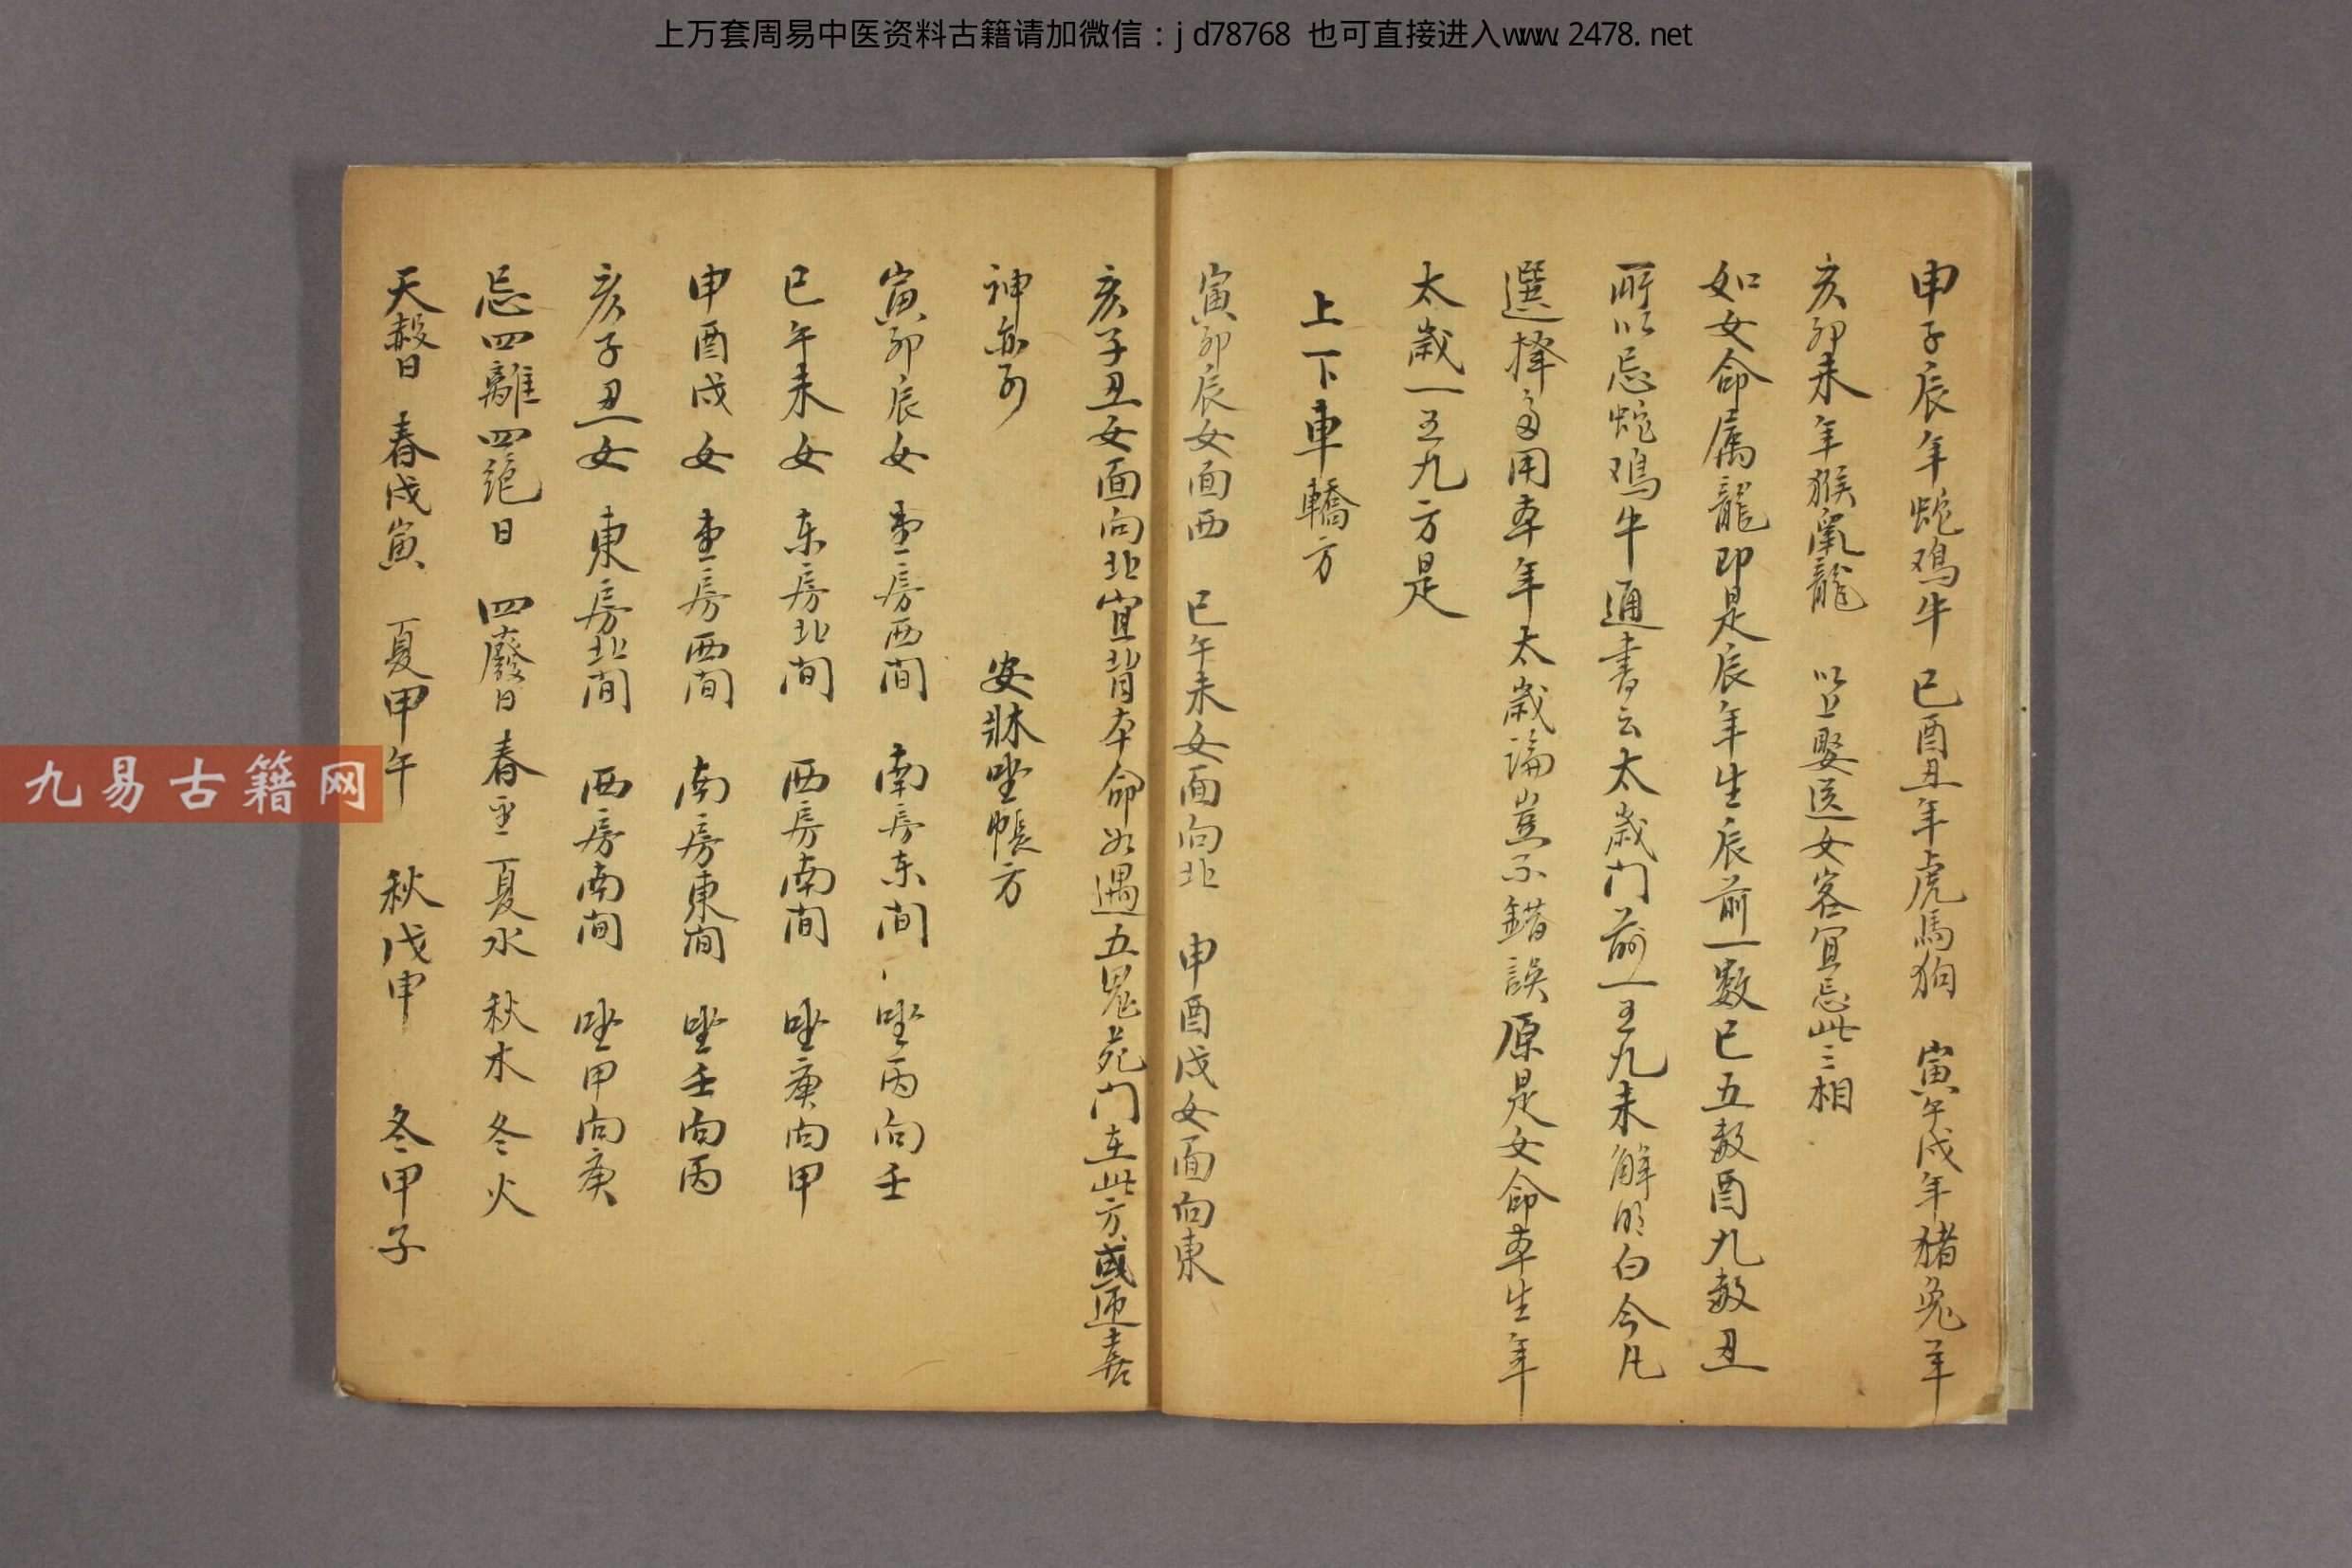 上万套周易中医资料古籍请加微信：jd78768 也可直接进入www.2478.net
申子辰年蛇鸡牛 巳酉丑年虎馬狗 寅午戌年猪兔羊
亥卯未年猴鼠龍 以上娶送女客宜忌此三相
如女命属龍即是辰年生辰前一数巳五数酉九数丑
所以忌蛇鸡牛通書云太歲门前一五九未解明白今凡
選擇多用本年太歲論豈不錯誤原是女命本生年
太歲一五九方是
上下車轎方
寅卯辰女面西 巳午未女面向北 申酉戌女面向東
亥子丑女面向北宜背本命如遇五鬼死门在此方或迎喜
神亦可 安牀坐帳方
寅卯辰女 房西间 南房东间 坐丙向壬
巳午未女 东房北间 西房南间 坐庚向甲
申酉戌女 房西间 南房東间 坐壬向丙
亥子丑女 東房北间 西房南间 坐甲向庚
忌四離四絕日 四廢日 春 夏水 秋木 冬火
天赦日 春戊寅 夏甲午 秋戊申 冬甲子
九易古籍网